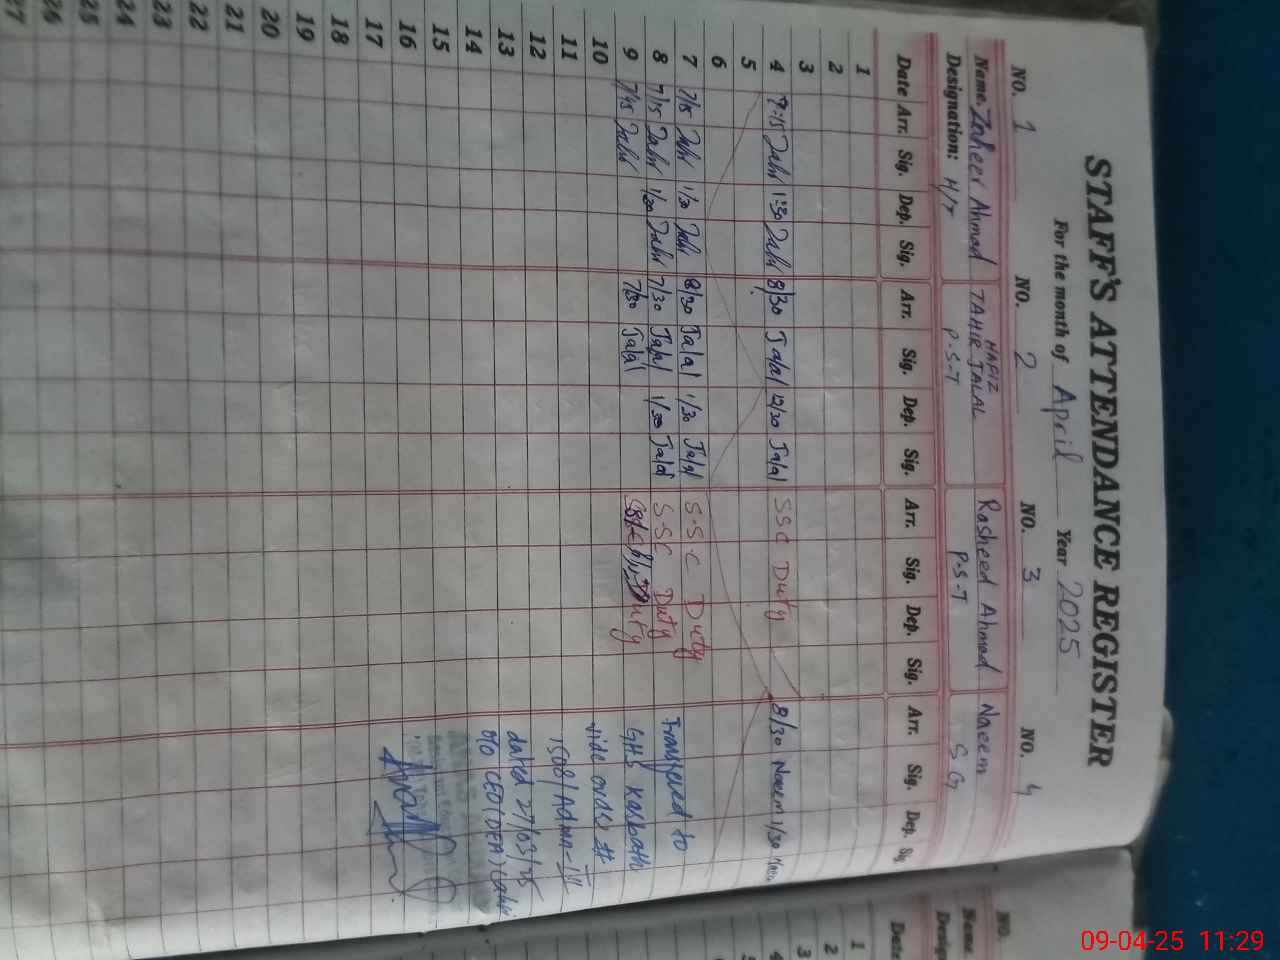 STAFF'S ATTENDANCE REGISTER
For the month of April Year 2025
NO. 1 NO. 2 NO. 3 NO. 4
Name. Zaheer Ahmad HAFIZ TAHIR JALAL Rasheed Ahmad Naeem
Designation: H/T P.S.T P.S.T S G
Date Arr. Sig. Dep. Sig. Arr. Sig. Dep. Sig. Arr. Sig. Dep. Sig. Arr. Sig. Dep. Sig
1
2
3
4 7:15 1:30 8/30 Jalal 12/30 Jalal SSC Duty 8/30 Naeem 1/30
5
6
7 7/15 1/30 8/30 Jalal 1/30 Jalal S.S.C Duty
8 7/15 1/30 7/30 Jalal 1/30 Jalal SSC Duty
9 7/15 7/30 Jalal Duty
10
11
12
13
14
15
16
17
18
19
20
21
22
23
24
25
26
27
Transfered to
GHS
vide order #
1508/Admn-III
dated 27/03/25
O/O CEO (DEA)
NO.
Name
Date
1
2
3
4
09-04-25 11:29